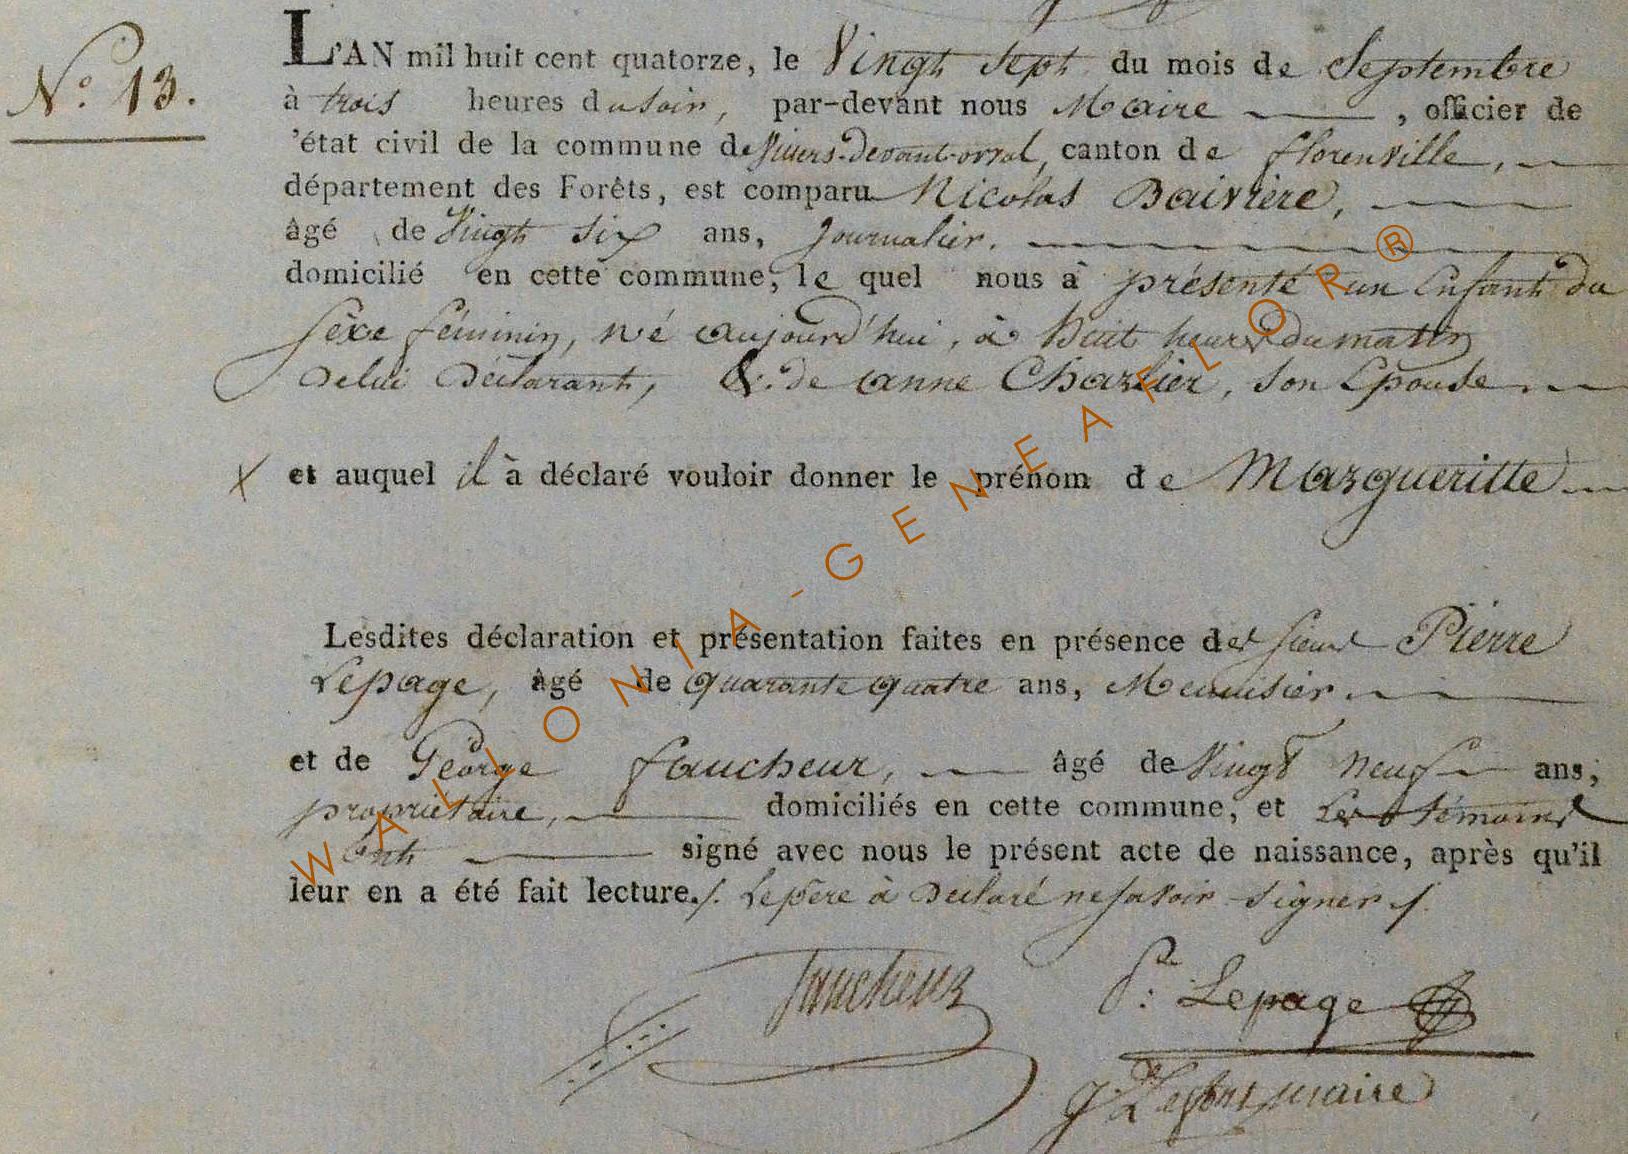 N.° 13.
L'AN mil huit cent quatorze, le Vingt sept du mois de Septembre
à trois heures du soir, par-devant nous Maire , officier de
'état civil de la commune de Villers-devant-orval, canton de florenville,
département des Forêts, est comparu Nicolas Baivrière,
âgé de Vingt six ans, Journalier.
domicilié en cette commune, le quel nous à présenté un Enfant du
sexe féminin, né aujourd'hui, à Huit heures du matin
de lui Déclarant, &. de anne Charlier, son Epouse
et auquel il à déclaré vouloir donner le prénom de Margueritte
Lesdites déclaration et présentation faites en présence des sieurs Pierre
Lepage, âgé de quarante quatre ans, Menuisier.
et de George faucheur, âgé de Vingt neuf ans,
propriétaire, domiciliés en cette commune, et Les témoins
ont signé avec nous le présent acte de naissance, après qu'il
leur en a été fait lecture./. Le père à Déclaré ne savoir signer /.
faucheur P.: Lepage
maire
WALLONIA-GENEAFLOR®